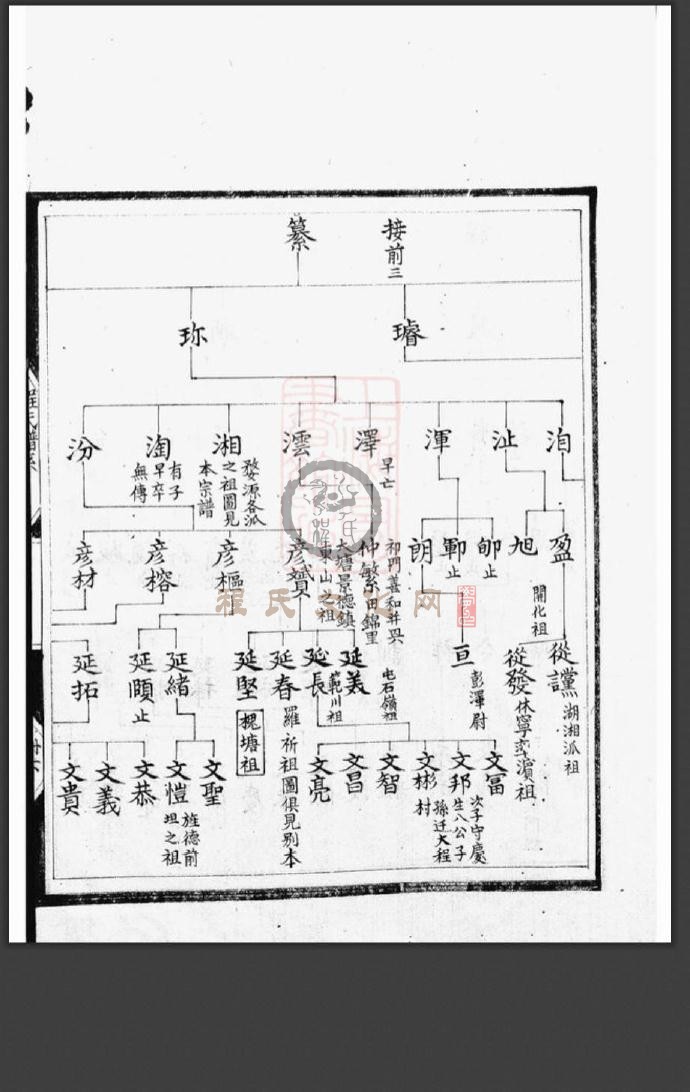 接前三
纂
璿
珎
洎
沚
渾
澤
早亡
澐
湘
婺源各派
之祖圖見
本宗譜
淘
有子
早卒
無傳
汾
盈
旭
開化祖
邮
止
鄆
止
朗
祁門善和井
仲繁田錦里
景德鎮
東山之祖
彥贇
彥樞
彥榕
彥材
從讜
湖湘派祖
從發
休寧
祖
亘
彭澤尉
延美
屯石嶺祖
延長
範川祖
延春
羅祈祖圖俱見别本
延堅
槐塘祖
延緒
延頤
止
延拓
文冨
文邦
次子守慶
生八公子
孫迁大程
村
文彬
文智
文昌
文亮
文聖
文愷
旌德前
坦之祖
文恭
文義
文貴
程氏文化网